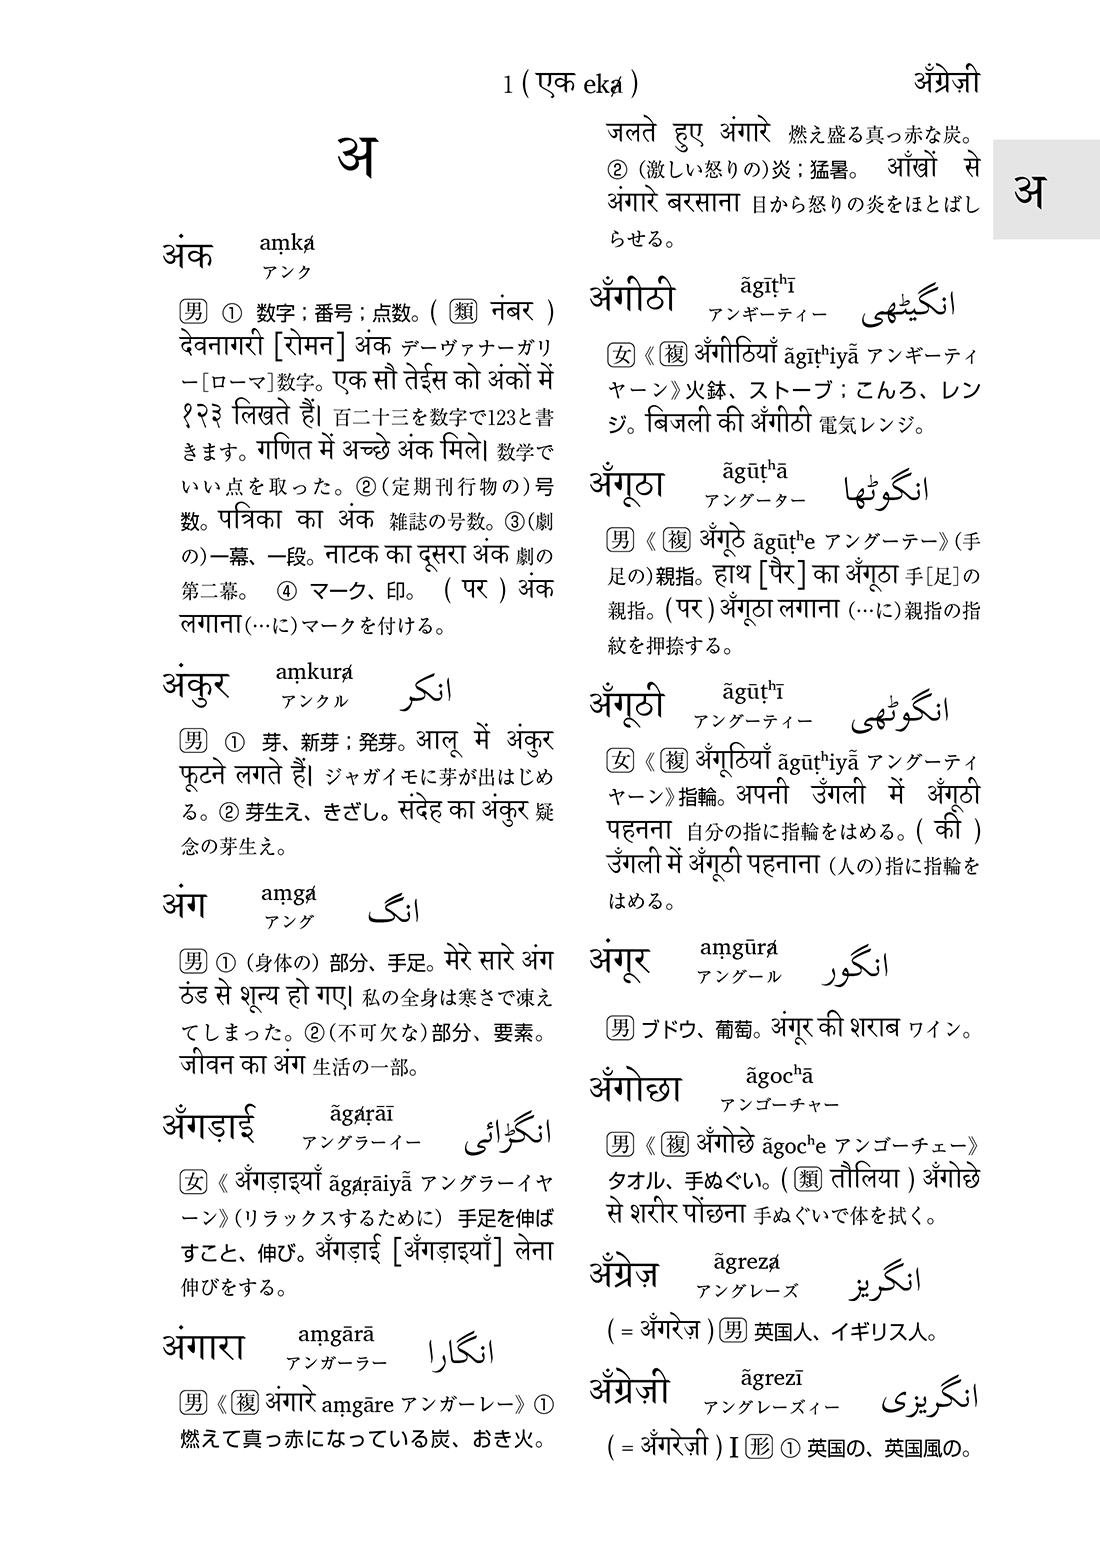 1 ( एक eka̸ )
अँग्रेज़ी
अ
अंक amka̸
アンク
男 ① 数字；番号；点数。( 類 नंबर )
देवनागरी [रोमन] अंक デーヴァナーガリ
ー[ローマ]数字。एक सौ तेईस को अंकों में
१२३ लिखते हैं। 百二十三を数字で123と書
きます。गणित में अच्छे अंक मिले। 数学で
いい点を取った。②(定期刊行物の)号
数。पत्रिका का अंक 雑誌の号数。③(劇
の)一幕、一段。नाटक का दूसरा अंक 劇の
第二幕。 ④ マーク、印。 ( पर ) अंक
लगाना(…に)マークを付ける。
अंकुर aṃkura̸ انکر
アンクル
男 ① 芽、新芽；発芽。आलू में अंकुर
फूटने लगते हैं। ジャガイモに芽が出はじめ
る。② 芽生え、きざし。संदेह का अंकुर 疑
念の芽生え。
अंग aṃga̸ انگ
アング
男 ① (身体の) 部分、手足。मेरे सारे अंग
ठंड से शून्य हो गए। 私の全身は寒さで凍え
てしまった。②(不可欠な)部分、要素。
जीवन का अंग 生活の一部。
अँगड़ाई ãga̸ṛāī انگڑائی
アングラーイー
女《 अँगड़ाइयाँ ãga̸ṛāiyā̃ アングラーイヤ
ーン》(リラックスするために) 手足を伸ば
すこと、伸び。अँगड़ाई [अँगड़ाइयाँ] लेना
伸びをする。
अंगारा aṃgārā انگارا
アンガーラー
男《複 अंगारे aṃgāre アンガーレー》①
燃えて真っ赤になっている炭、おき火。
जलते हुए अंगारे 燃え盛る真っ赤な炭。
② (激しい怒りの)炎；猛暑。 आँखों से
अंगारे बरसाना 目から怒りの炎をほとばし
らせる。
अँगीठी ãgīṭʰī انگیٹھی
アンギーティー
女《複 अँगीठियाँ ãgīṭʰiyā̃ アンギーティ
ヤーン》火鉢、ストーブ；こんろ、レン
ジ。बिजली की अँगीठी 電気レンジ。
अँगूठा ãgūṭʰā انگوٹھا
アングーター
男《複 अँगूठे ãgūṭʰe アングーテー》(手
足の)親指。हाथ [पैर] का अँगूठा 手[足]の
親指。( पर ) अँगूठा लगाना (…に)親指の指
紋を押捺する。
अँगूठी ãgūṭʰī انگوٹھی
アングーティー
女《複 अँगूठियाँ ãgūṭʰiyā̃ アングーティ
ヤーン》指輪。अपनी उँगली में अँगूठी
पहनना 自分の指に指輪をはめる。( की )
उँगली में अँगूठी पहनाना (人の)指に指輪を
はめる。
अंगूर aṃgūra̸ انگور
アングール
男 ブドウ、葡萄。अंगूर की शराब ワイン。
अँगोछा ãgocʰā
アンゴーチャー
男《複 अँगोछे ãgocʰe アンゴーチェー》
タオル、手ぬぐい。( 類 तौलिया ) अँगोछे
से शरीर पोंछना 手ぬぐいで体を拭く。
अँग्रेज़ ãgreza̸ انگریز
アングレーズ
( = अँगरेज़ )男 英国人、イギリス人。
अँग्रेज़ी ãgrezī انگریزی
アングレーズィー
( = अँगरेज़ी ) I 形 ① 英国の、英国風の。
अ